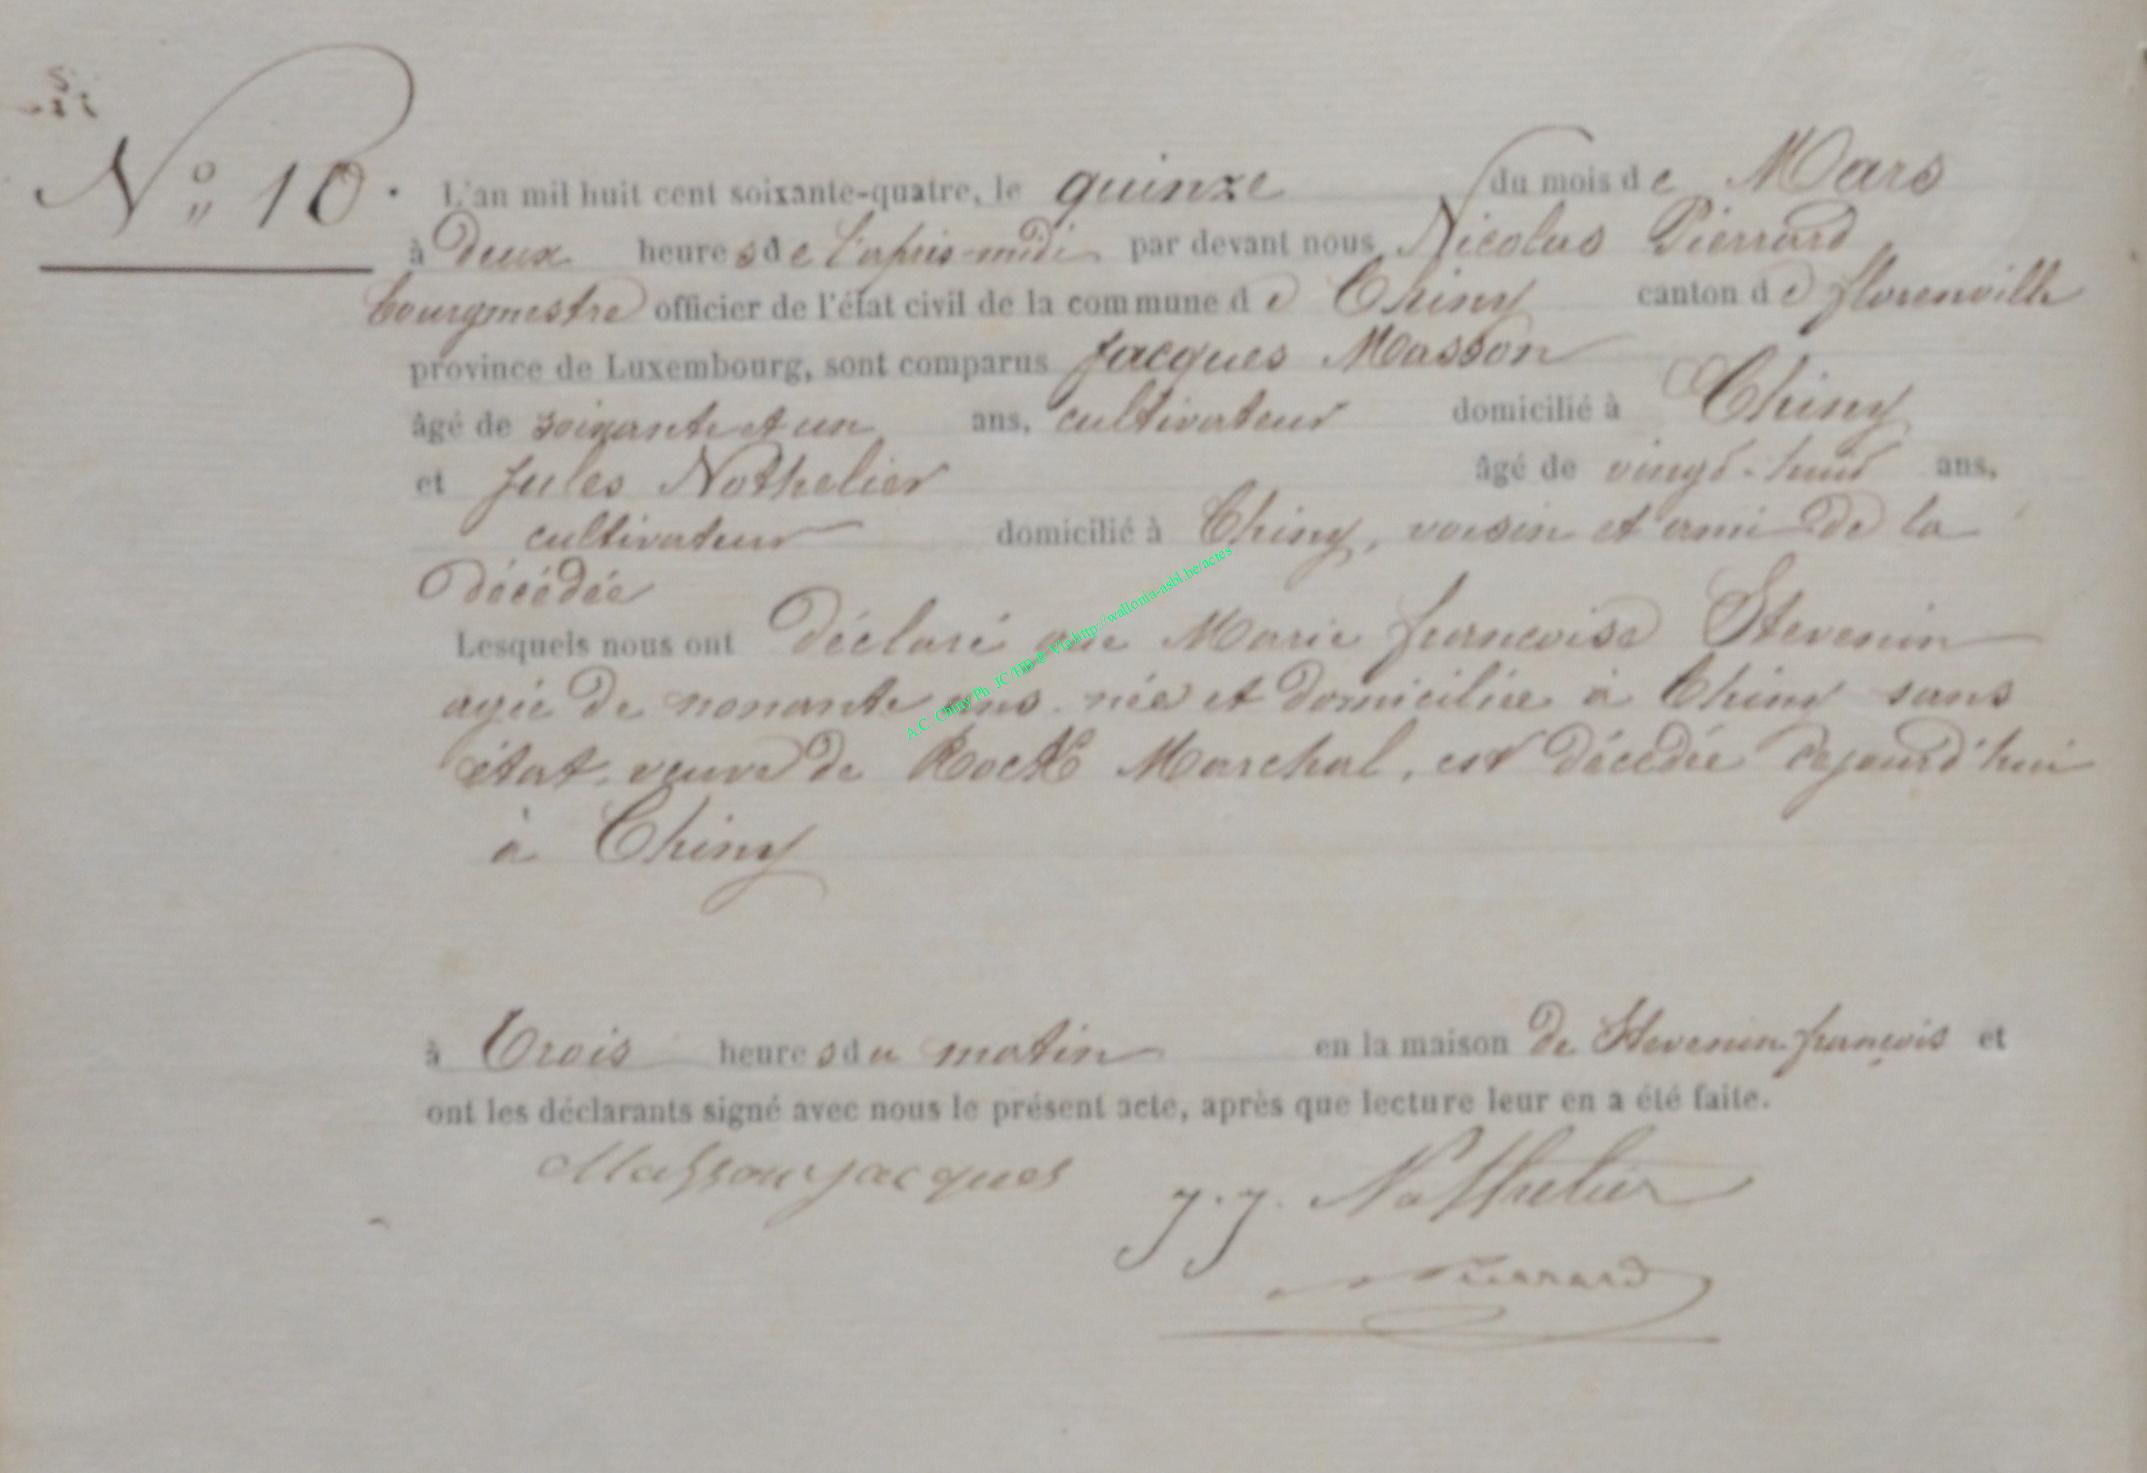 N° 10.
L'an mil huit cent soixante-quatre, le quinze du mois de Mars
à Deux heures de l'après-midi par devant nous Nicolas Pierrard
bourgmestre officier de l'état civil de la commune de Chiny canton de florenville
province de Luxembourg, sont comparus Jacques Masson
âgé de soixante et un ans, cultivateur domicilié à Chiny
et Jules Nothelier âgé de vingt-huit ans,
cultivateur domicilié à Chiny, voisin et ami de la
Décédée
Lesquels nous ont Déclaré que Marie françoise Stevenin
agée de nonante ans née et domiciliée à Chiny sans
état, veuve de Rock Marchal, est décédée cejourd'hui
à Chiny
à trois heures du matin en la maison de Stevenin françois et
ont les déclarants signé avec nous le présent acte, après que lecture leur en a été faite.
Masson jacques
J. J. Nothelier
N Pierrard
A.C. Chiny Ph JC/HB @ Via http://wallonia-asbl.be/actes